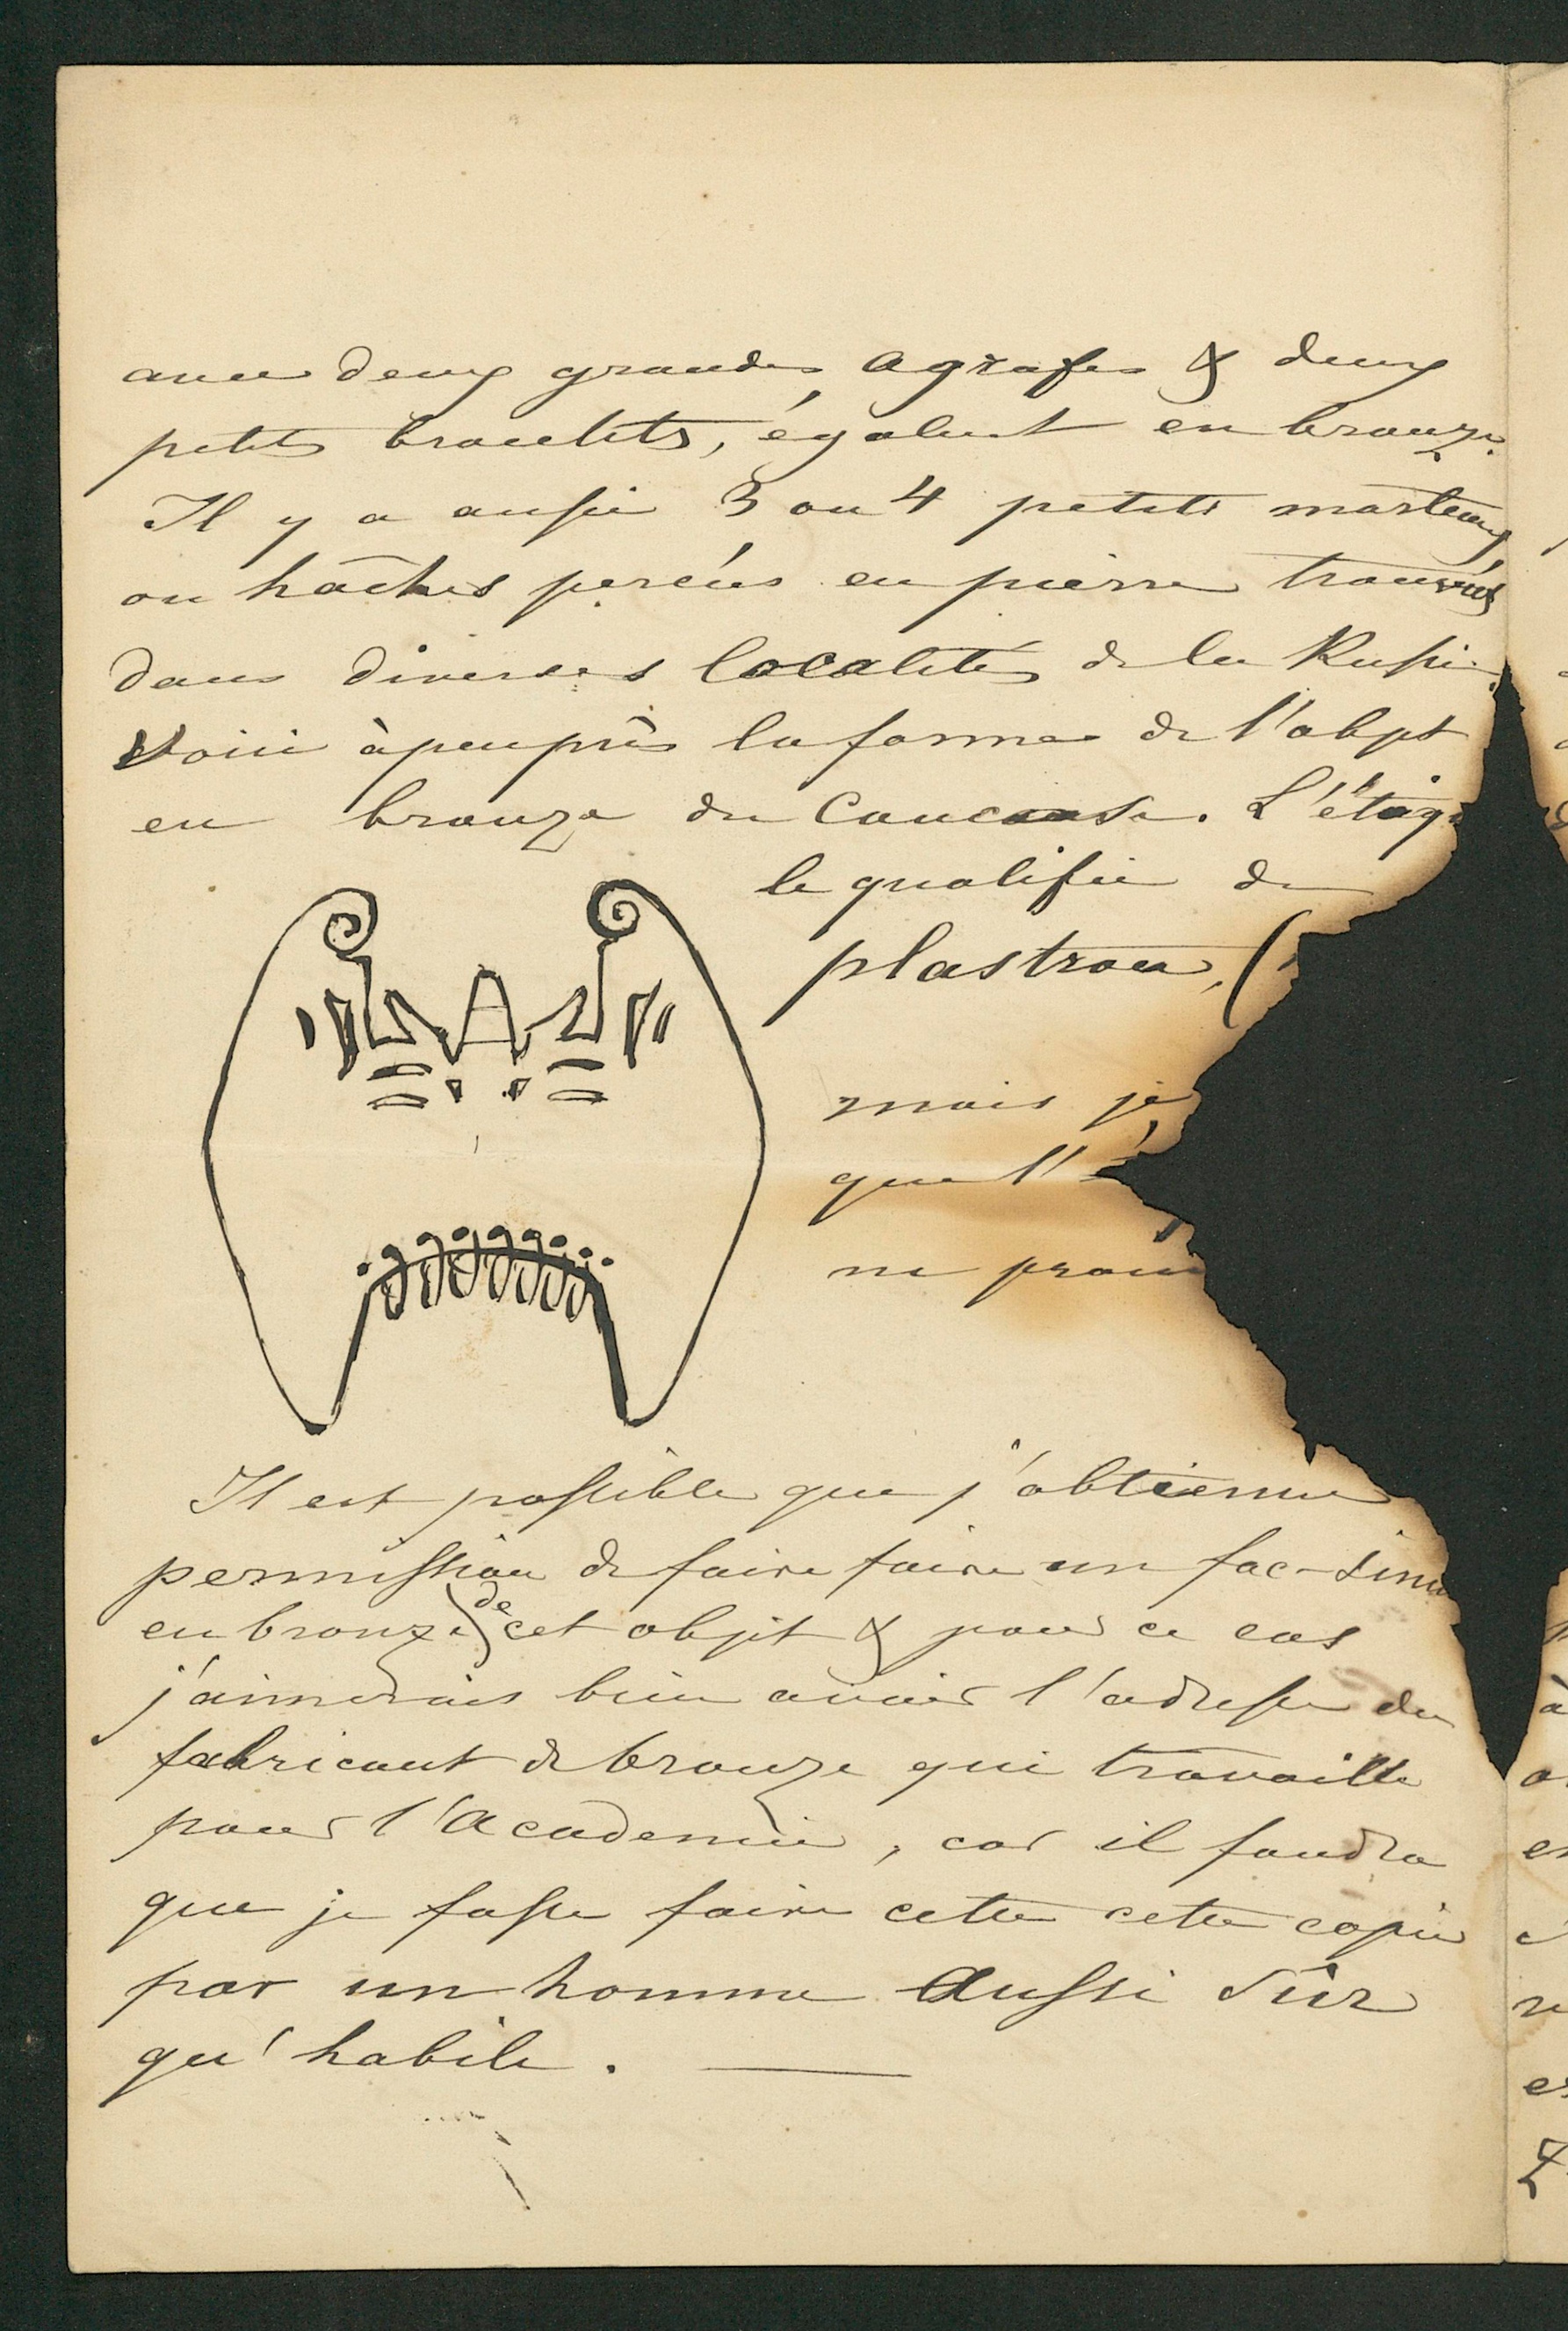 avec deux grandes agrafes & deux
petits bracelets, également en bronze.
Il y a aussi 3 ou 4 petits marteaux
ou hâches percées en pierre trouvés
dans diverses localités de la Russie.
Voici àpeuprès la forme de l'objet
en bronze du Caucase. L'étiq
le qualifie de
plastron, (
mais je
que l'
ne
Il est possible que j'obtienne
permission de faire faire un fac-simi
en bronze de cet objet & pour ce cas
j'aimerais bien avoir l'adresse du
fabricant de bronze qui travaille
pour l'Academie, car il faudra
que je fasse faire cette cette copie
par un homme aussi sûr
qu'habile.